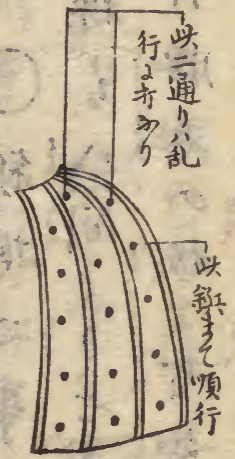 此二通りハ乱
行ニ打なり
此鋲まて順行